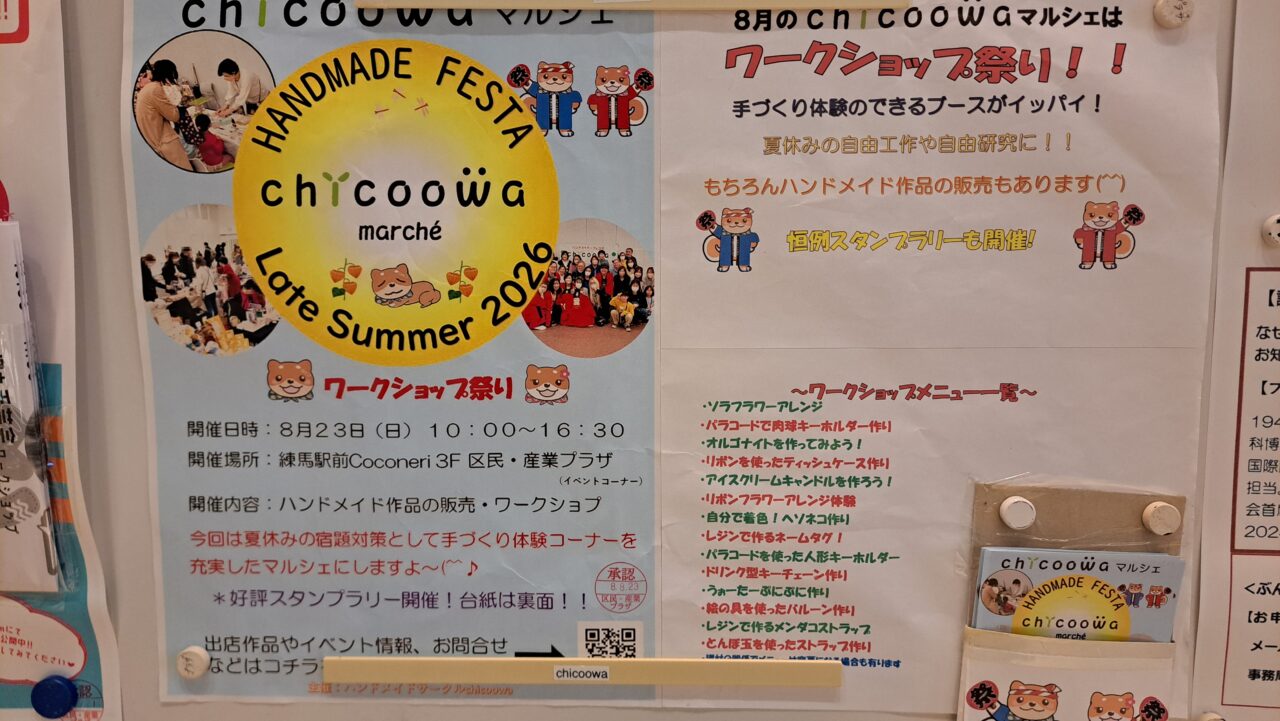 chicoowa マルシェ
HANDMADE FESTA
chicoowa
marché
Late Summer 2026
ワークショップ祭り
開催日時：８月２３日（日） １０：００～１６：３０
開催場所：練馬駅前Coconeri 3F 区民・産業プラザ
（イベントコーナー）
開催内容：ハンドメイド作品の販売・ワークショプ
今回は夏休みの宿題対策として手づくり体験コーナーを
充実したマルシェにしますよ～(^^♪
＊好評スタンプラリー開催！台紙は裏面！！
承認
8.8.23
区民・産業
プラザ
出店作品やイベント情報、お問合せ
などはコチラ
chicoowa
主催：ハンドメイドサークルchicoowa
8月のchicoowaマルシェは
ワークショップ祭り！！
手づくり体験のできるブースがイッパイ！
夏休みの自由工作や自由研究に！！
もちろんハンドメイド作品の販売もあります(^^)
祭
祭
恒例スタンプラリーも開催!
～ワークショップメニュー一覧～
・ソラフラワーアレンジ
・パラコードで肉球キーホルダー作り
・オルゴナイトを作ってみよう！
・リボンを使ったティッシュケース作り
・アイスクリームキャンドルを作ろう！
・リボンフラワーアレンジ体験
・自分で着色！ヘソネコ作り
・レジンで作るネームタグ！
・パラコードを使った人形キーホルダー
・ドリンク型キーチェーン作り
・うぉーたーぷにぷに作り
・絵の具を使ったバルーン作り
・レジンで作るメンダコストラップ
・とんぼ玉を使ったストラップ作り
chicoowa マルシェ
HANDMADE FESTA
chicoowa
marché
祭
祭
なぜ
お知
194
科博
国際
担当
会首
202
＜ぶん
【お申
メール
事務局
公開中!!
してみてください
承認